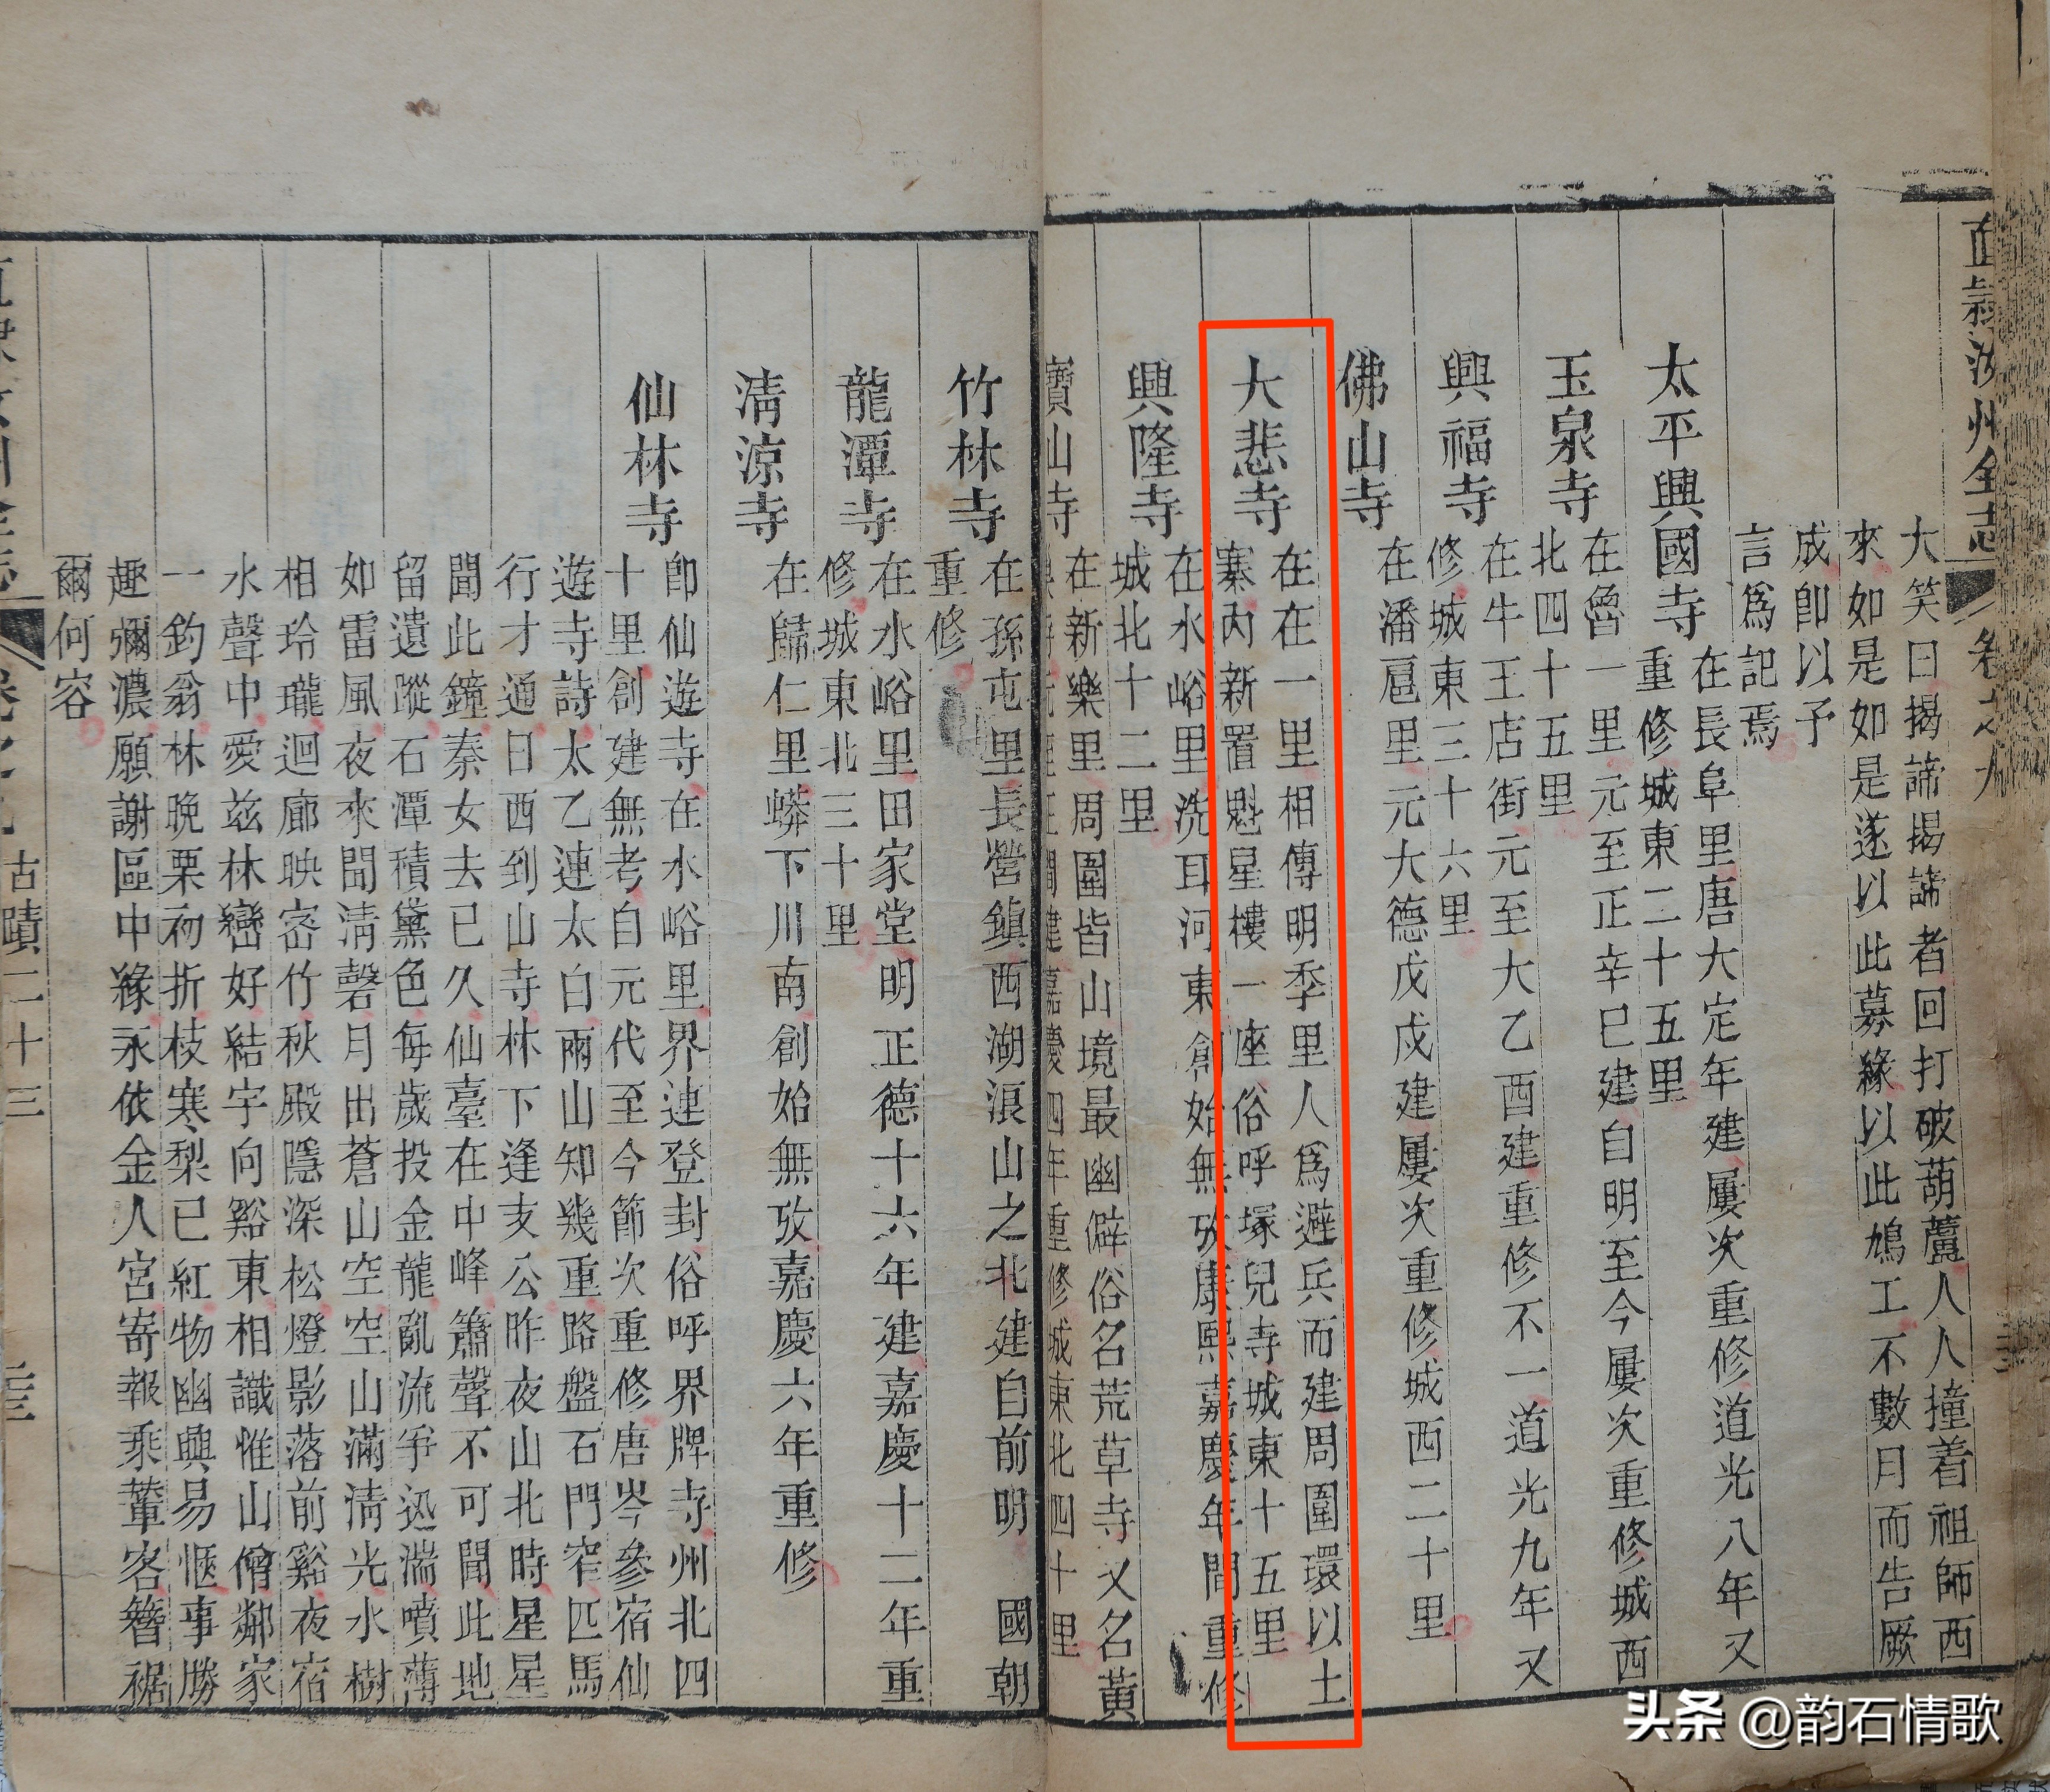 直隸汝州全志
卷之九
大笑曰揭諦揭諦者回打破葫蘆人人撞着祖師西
來如是如是遂以此募緣以此鳩工不數月而告厥
成卽以予
言爲記焉
太平興國寺
在長阜里唐大定年建屢次重修道光八年又
重修城東二十五里
玉泉寺
在魯一里元至正辛巳建自明至今屢次重修城西
北四十五里
興福寺
在牛王店街元至大乙酉建重修不一道光九年又
修城東三十六里
佛山寺
在潘扈里元大德戊戌建屢次重修城西二十里
大悲寺
在在一里相傳明季里人爲避兵而建周圍環以土
寨內新置魁星樓一座俗呼塚兒寺城東十五里
興隆寺
在水峪里洗耳河東創始無攷康熙嘉慶年間重修
城北十二里
寶山寺
在新樂里周圍皆山境最幽僻俗名荒草寺又名黃
建嘉慶四年重修城東北四十里
竹林寺
在孫屯里長營鎮西湖浪山之北建自前明 國朝
重修
龍潭寺
在水峪里田家堂明正德十六年建嘉慶十二年重
修城東北三十里
清涼寺
在歸仁里蟒下川南創始無攷嘉慶六年重修
仙林寺
卽仙遊寺在水峪里界連登封俗呼界牌寺州北四
十里創建無考自元代至今節次重修唐岑參宿仙
遊寺詩太乙連太白兩山知幾重路盤石門窄匹馬
行才通日西到山寺林下逢支公昨夜山北時星星
聞此鐘秦女去已久仙臺在中峰簫聲不可聞此地
留遺蹤石潭積黛色每歲投金龍亂流爭迅湍噴薄
如雷風夜來聞清磬月出蒼山空空山滿清光水樹
相玲瓏迴廊映密竹秋殿隱深松燈影落前谿夜宿
水聲中愛茲林巒好結宇向谿東相識惟山僧鄰家
一釣翁林晚栗初折枝寒梨已紅物幽興易愜事勝
趣彌濃願謝區中緣永依金人宮寄報乘輦客簪裾
爾何容
古蹟二十三
头条 @韵石情歌